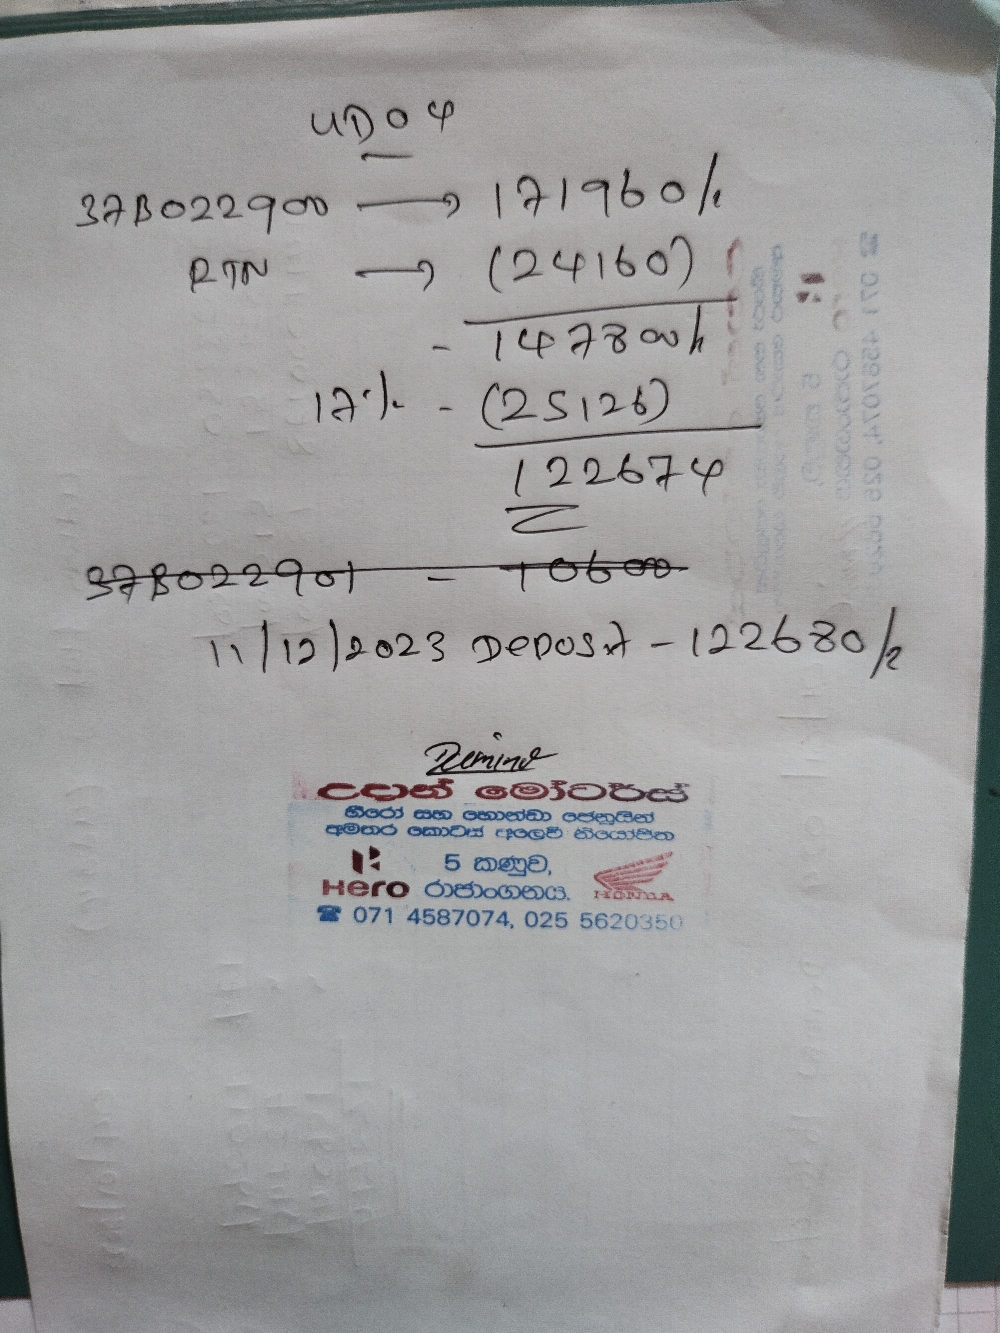 UD04
37B022900 → 171960/-
RTN → (24160)
- 147800/-
17% - (25126)
122674
37B022901 - 10600
11/12/2023 Deposit - 122680/-
උදාන් මෝටර්ස්
හීරෝ සහ හොන්ඩා ජෙනුයින්
අමතර කොටස් අලෙවි නියෝජිත
5 කණුව,
Hero රාජාංගනය. HONDA
☎ 071 4587074, 025 5620350